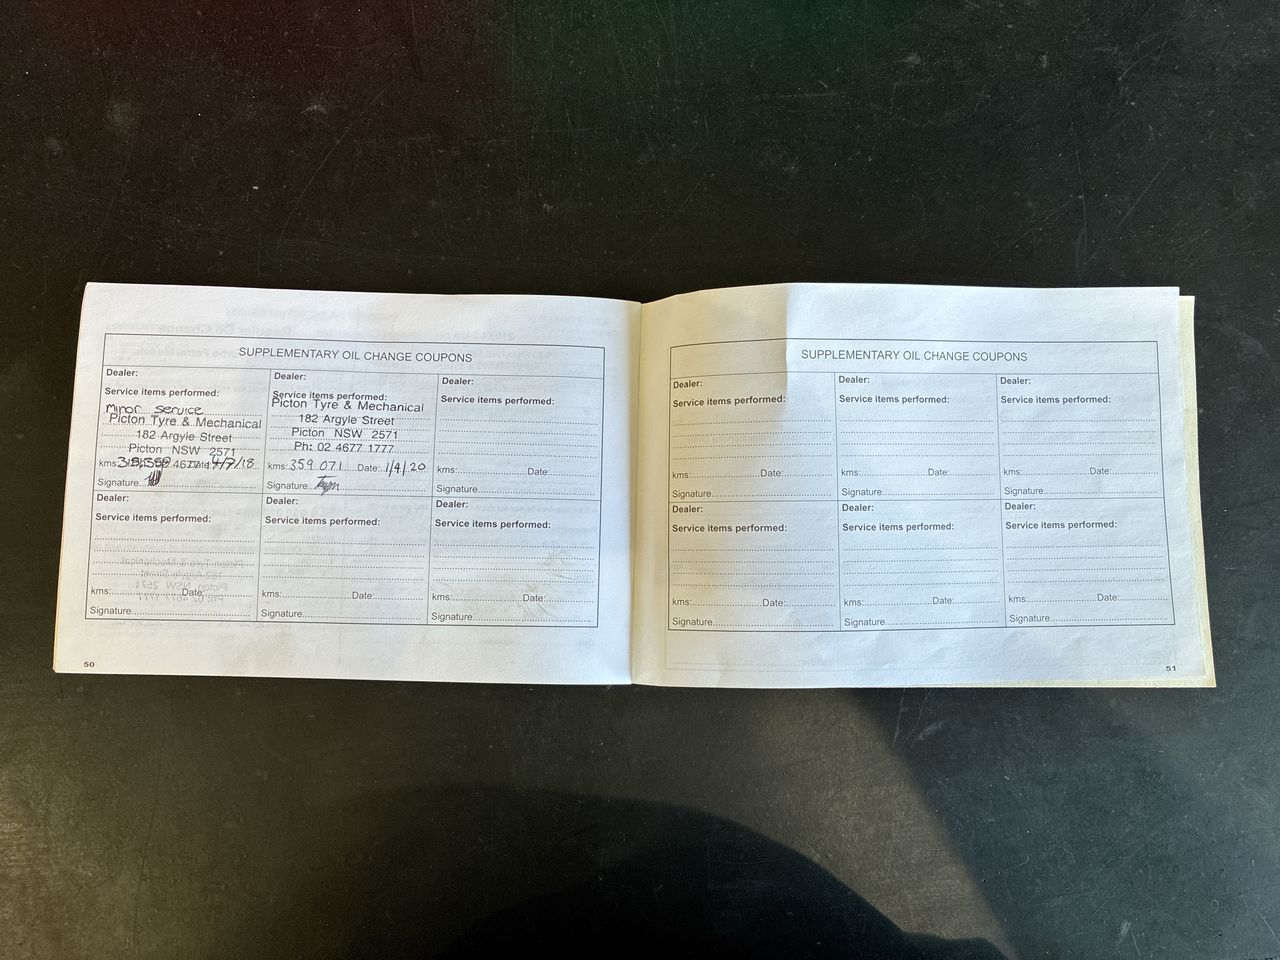 SUPPLEMENTARY OIL CHANGE COUPONS
Dealer:
Service items performed:
Minor service
Picton Tyre & Mechanical
182 Argyle Street
Picton NSW 2571
kms: 4677 Date: 4/7/18
Signature
Dealer:
Service items performed:
Picton Tyre & Mechanical
182 Argyle Street
Picton NSW 2571
Ph: 02 4677 1777
kms: 359 071 Date: 1/4/20
Signature
Dealer:
Service items performed:
kms: Date:
Signature
Dealer:
Service items performed:
kms: Date:
Signature
Dealer:
Service items performed:
kms: Date:
Signature
Dealer:
Service items performed:
kms: Date:
Signature
50
SUPPLEMENTARY OIL CHANGE COUPONS
Dealer:
Service items performed:
kms: Date:
Signature
Dealer:
Service items performed:
kms: Date:
Signature
Dealer:
Service items performed:
kms: Date:
Signature
Dealer:
Service items performed:
kms: Date:
Signature
Dealer:
Service items performed:
kms: Date:
Signature
Dealer:
Service items performed:
kms: Date:
Signature
51